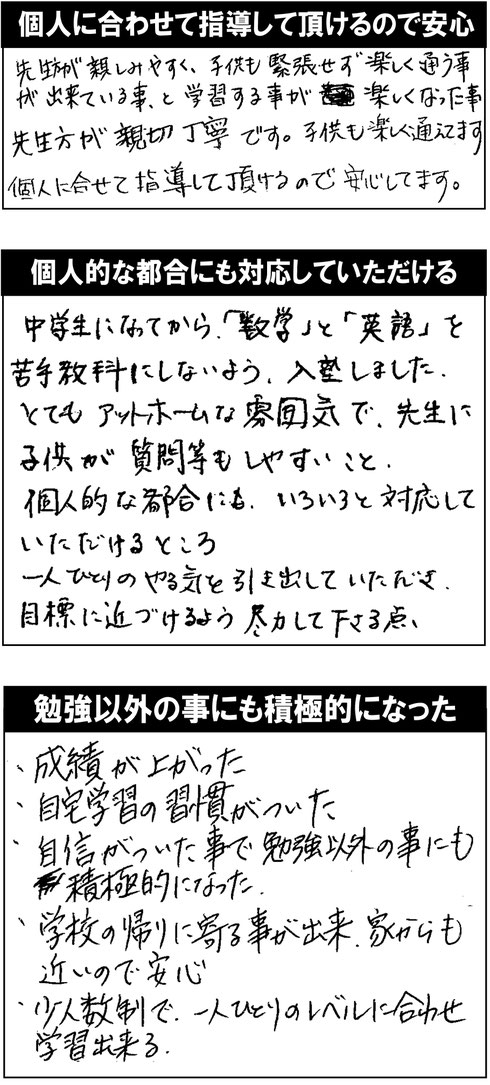 個人に合わせて指導して頂けるので安心
先生が親しみやすく、子供も緊張せず楽しく通う事
が出来ている事、と学習する事が楽しくなった事
先生方が親切丁寧です。子供も楽しく通えてます
個人に合せて指導して頂けるので安心してます。
個人的な都合にも対応していただける
中学生になってから、「数学」と「英語」を
苦手教科にしないよう、入塾しました.
とてもアットホームな雰囲気で、先生に
子供が質問等もしやすいこと.
個人的な都合にも、いろいろと対応して
いただけるところ
一人ひとりのやる気を引き出していただき、
目標に近づけるよう尽力して下さる点、
勉強以外の事にも積極的になった
、成績が上がった
、自宅学習の習慣がついた
、自信がついた事で勉強以外の事にも
積極的になった.
、学校の帰りに寄る事が出来、家からも
近いので安心
、少人数制で、一人ひとりのレベルに合わせ
学習出来る.